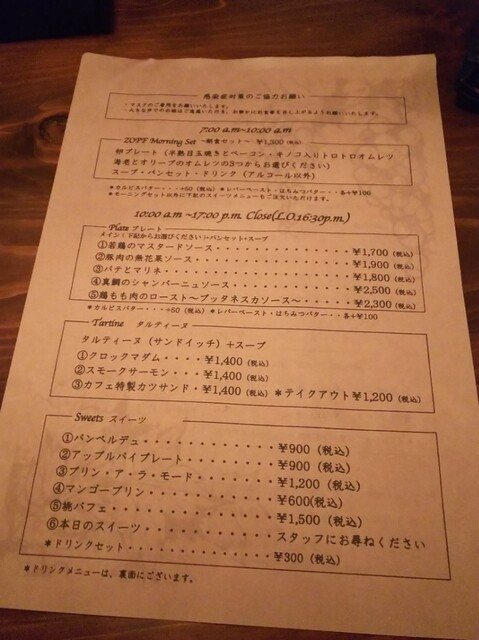 感染症対策のご協力お願い
・マスクのご着用をお願いいたします。
7:00 a.m~10:00 a.m
ZOPF Morning Set ～朝食セット～ ¥1,300 (税込)
卵プレート (半熟目玉焼きとベーコン・キノコ入りトロトロオムレツ
海老とオリーブのオムレツの3つからお選びください)
スープ・パンセット・ドリンク (アルコール以外)
*カルピスバター・・・+60 (税込) *レバーペースト・はちみつバター・・各+¥100
*モーニングセット以外に下記のスイーツメニューもご注文いただけます。
10:00 a.m ~17:00 p.m. Close(L.O.16:30p.m.)
Plate プレート
メイン (下記からお選びください)+パンセット+スープ
①若鶏のマスタードソース・・・・・・・・・・・・・¥1,700 (税込)
②豚肉の無花果ソース・・・・・・・・・・・・・・・¥1,900 (税込)
③パテとマリネ・・・・・・・・・・・・・・・・・・¥1,800 (税込)
④真鯛のシャンパーニュソース・・・・・・・・・・・¥2,500 (税込)
⑤鶏もも肉のロースト～プッタネスカソース～・・・・¥2,300 (税込)
*カルピスバター・・・+60 (税込) *レバーペースト・はちみつバター・・各+¥100
Tartine タルティーヌ
タルティーヌ (サンドイッチ) +スープ
①クロックマダム・・・・¥1,400 (税込)
②スモークサーモン・・・¥1,400 (税込)
③カフェ特製カツサンド・¥1,400 (税込) *テイクアウト¥1,200 (税込)
Sweets スイーツ
①パンペルデュ・・・・・・・・・・・・¥900 (税込)
②アップルパイプレート・・・・・・・・¥900 (税込)
③プリン・ア・ラ・モード・・・・・・・¥1,200 (税込)
④マンゴープリン・・・・・・・・・・・¥600(税込)
⑤桃パフェ・・・・・・・・・・・・・・¥1,500 (税込)
⑥本日のスイーツ・・・・・・・・・・・スタッフにお尋ねください
*ドリンクセット・・・・・・・・・・・¥300 (税込)
*ドリンクメニューは、裏面にございます。